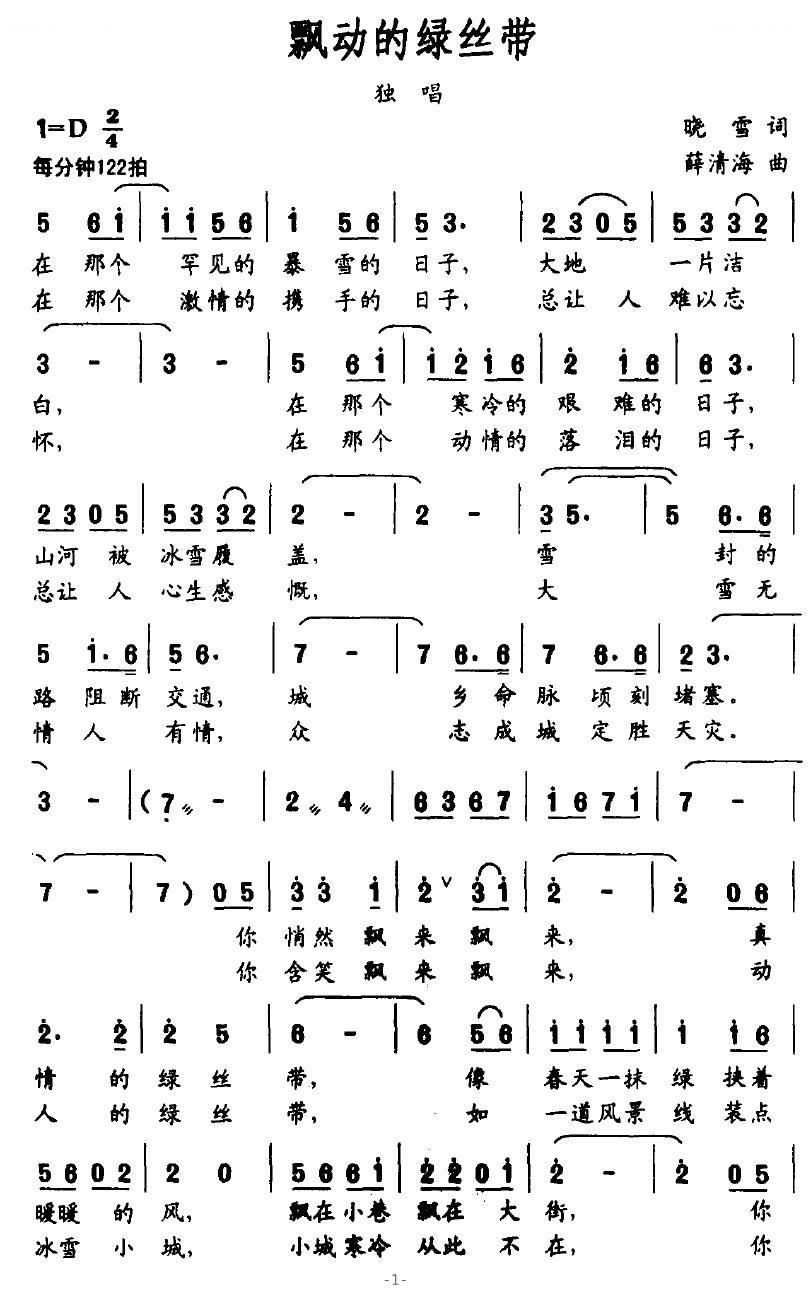 飘动的绿丝带
独 唱
1=D 2/4
晓 雪 词
每分钟122拍
薛清海 曲
5 6i | ii56 | i 56 | 53. | 2305 | 5332 |
在 那个 罕见的 暴 雪的 日子, 大地 一片洁
在 那个 激情的 携 手的 日子, 总让 人 难以忘
3 - | 3 - | 5 6i | i2i6 | 2 16 | 63. |
白, 在 那个 寒冷的 艰 难的 日子,
怀, 在 那个 动情的 落 泪的 日子,
2305 | 5332 | 2 - | 2 - | 35. | 5 6.6 |
山河 被 冰雪履 盖, 雪 封的
总让 人 心生感 慨, 大 雪无
5 i.6 | 56. | 7 - | 7 6.6 | 7 6.6 | 23. |
路 阻断 交通, 城 乡命 脉 顷刻 堵塞.
情 人 有情, 众 志成 城 定胜 天灾.
3 - | (7 - | 2 4 | 6367 | i67i | 7 - |
7 - | 7) 05 | 33 i | 2 ∨ 3i | 2 - | 2 06 |
你 悄然 飘 来 飘 来, 真
你 含笑 飘 来 飘 来, 动
2. 2 | 2 5 | 6 - | 6 56 | iiii | i i6 |
情 的 绿 丝 带, 像 春天一抹 绿 挟着
人 的 绿 丝 带, 如 一道风景 线 装点
5602 | 2 0 | 566i | 220i | 2 - | 2 05 |
暖暖 的 风, 飘在小巷 飘在 大 街, 你
冰雪 小 城, 小城寒冷 从此 不 在, 你
-1-